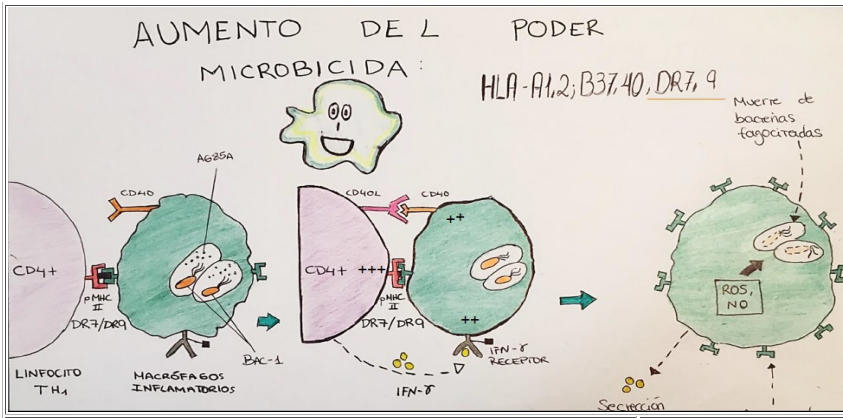 AUMENTO DEL PODER
MICROBICIDA:
HLA-A1,2; B37,40, DR7, 9
Muerte de
bacterias
fagocitadas
AG85A
CD40
CD4+
pMHC
II
DR7/DR9
LINFOCITO
TH1
MACRÓFAGOS
INFLAMATORIOS
BAC-1
CD40L
CD40
++
CD4+
+++
pMHC
II
DR7/DR9
++
IFN-γ
RECEPTOR
IFN-γ
ROS,
NO
Secrección